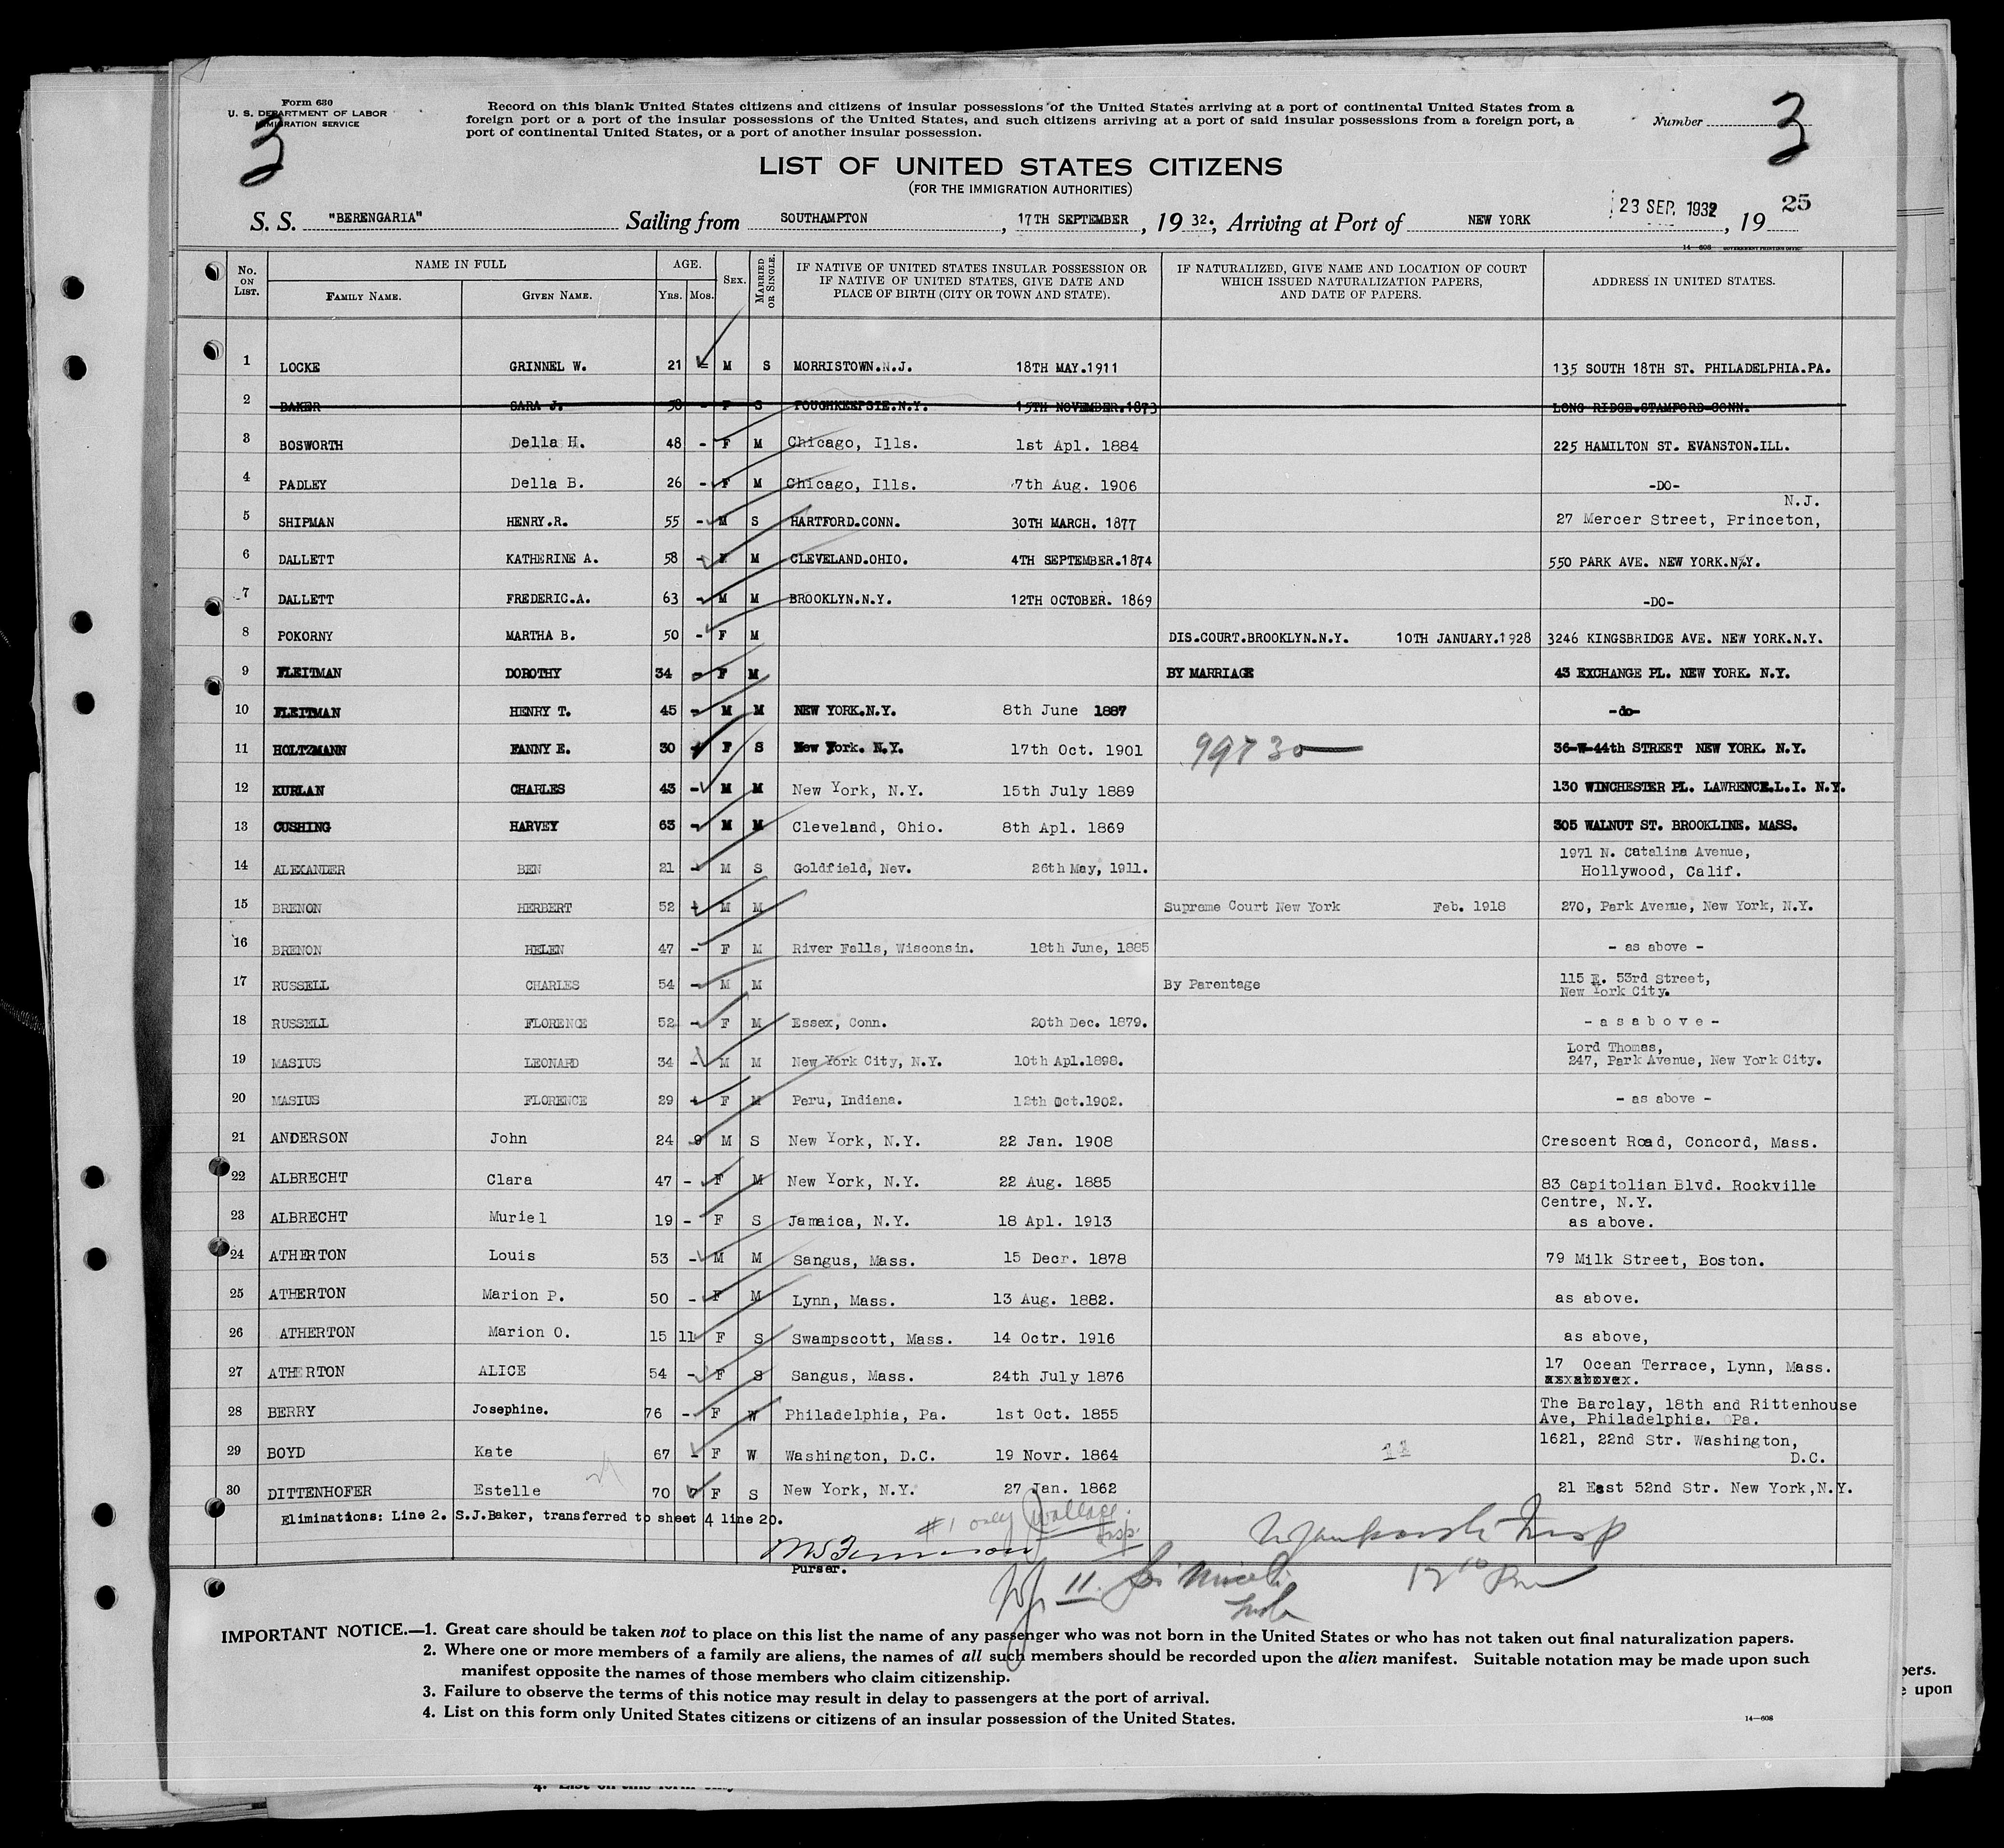 Form 630
U. S. DEPARTMENT OF LABOR
IMMIGRATION SERVICE
3
Record on this blank United States citizens and citizens of insular possessions of the United States arriving at a port of continental United States from a
foreign port or a port of the insular possessions of the United States, and such citizens arriving at a port of said insular possessions from a foreign port, a
port of continental United States, or a port of another insular possession.
Number 3
LIST OF UNITED STATES CITIZENS
(FOR THE IMMIGRATION AUTHORITIES)
S. S. "BERENGARIA" Sailing from SOUTHAMPTON, 17TH SEPTEMBER, 19 32.; Arriving at Port of NEW YORK 23 SEP. 1932, 19 25
14—608 GOVERNMENT PRINTING OFFICE
No. ON LIST. NAME IN FULL FAMILY NAME. GIVEN NAME. AGE. YRS. MOS. SEX. MARRIED OR SINGLE. IF NATIVE OF UNITED STATES INSULAR POSSESSION OR IF NATIVE OF UNITED STATES, GIVE DATE AND PLACE OF BIRTH (CITY OR TOWN AND STATE). IF NATURALIZED, GIVE NAME AND LOCATION OF COURT WHICH ISSUED NATURALIZATION PAPERS, AND DATE OF PAPERS. ADDRESS IN UNITED STATES.
1 LOCKE GRINNEL W. 21 - M S MORRISTOWN.N.J. 18TH MAY.1911 135 SOUTH 18TH ST. PHILADELPHIA.PA.
2 BAKER SARA J. 58 - F S POUGHKEEPSIE.N.Y. 15TH NOVEMBER.1873 LONG RIDGE.STAMFORD CONN.
3 BOSWORTH Della H. 48 - F M Chicago, Ills. 1st Apl. 1884 225 HAMILTON ST. EVANSTON.ILL.
4 PADLEY Della B. 26 - F M Chicago, Ills. 7th Aug. 1906 -DO-
5 SHIPMAN HENRY.R. 55 - M S HARTFORD.CONN. 30TH MARCH. 1877 27 Mercer Street, Princeton, N.J.
6 DALLETT KATHERINE A. 58 - F M CLEVELAND.OHIO. 4TH SEPTEMBER.1874 550 PARK AVE. NEW YORK.N.Y.
7 DALLETT FREDERIC.A. 63 - M M BROOKLYN.N.Y. 12TH OCTOBER. 1869 -DO-
8 POKORNY MARTHA B. 50 - F M DIS.COURT.BROOKLYN.N.Y. 10TH JANUARY.1928 3246 KINGSBRIDGE AVE. NEW YORK.N.Y.
9 FLEITMAN DOROTHY 34 - F M BY MARRIAGE 43 EXCHANGE PL. NEW YORK. N.Y.
10 FLEITMAN HENRY T. 45 - M M NEW YORK.N.Y. 8th June 1887 -do-
11 HOLTZMANN FANNY E. 30 F S New York. N.Y. 17th Oct. 1901 99730 36-W-44th STREET NEW YORK. N.Y.
12 KURLAN CHARLES 43 - M M New York, N.Y. 15th July 1889 130 WINCHESTER PL. LAWRENCE.L.I. N.Y.
13 CUSHING HARVEY 63 - M M Cleveland, Ohio. 8th Apl. 1869 305 WALNUT ST. BROOKLINE. MASS.
14 ALEXANDER BEN 21 - M S Goldfield, Nev. 26th May, 1911. 1971 N. Catalina Avenue,
Hollywood, Calif.
15 BRENON HERBERT 52 - M M Supreme Court New York Feb. 1918 270, Park Avenue, New York, N.Y.
16 BRENON HELEN 47 - F M River Falls, Wisconsin. 18th June, 1885 - as above -
17 RUSSELL CHARLES 54 - M M By Parentage 115 E. 53rd Street,
New York City.
18 RUSSELL FLORENCE 52 - F M Essex, Conn. 20th Dec. 1879. - a s a b o v e -
19 MASIUS LEONARD 34 - M M New York City, N.Y. 10th Apl.1898. Lord Thomas,
247, Park Avenue, New York City.
20 MASIUS FLORENCE 29 - F M Peru, Indiana. 12th Oct.1902. - as above -
21 ANDERSON John 24 9 M S New York, N.Y. 22 Jan. 1908 Crescent Road, Concord, Mass.
22 ALBRECHT Clara 47 - F M New York, N.Y. 22 Aug. 1885 83 Capitolian Blvd. Rockville
Centre, N.Y.
23 ALBRECHT Muriel 19 - F S Jamaica, N.Y. 18 Apl. 1913 as above.
24 ATHERTON Louis 53 - M M Sangus, Mass. 15 Decr. 1878 79 Milk Street, Boston.
25 ATHERTON Marion P. 50 - F M Lynn, Mass. 13 Aug. 1882. as above.
26 ATHERTON Marion O. 15 11 F S Swampscott, Mass. 14 Octr. 1916 as above,
27 ATHERTON ALICE 54 - F S Sangus, Mass. 24th July 1876 17 Ocean Terrace, Lynn, Mass.
28 BERRY Josephine. 76 - F W Philadelphia, Pa. 1st Oct. 1855 The Barclay, 18th and Rittenhouse
Ave, Philadelphia. Pa.
29 BOYD Kate 67 - F W Washington, D.C. 19 Novr. 1864 11 1621, 22nd Str. Washington,
D.C.
30 DITTENHOFER Estelle 70 7 F S New York, N.Y. 27 Jan. 1862 21 East 52nd Str. New York,N.Y.
Eliminations: Line 2. S.J.Baker, transferred to sheet 4 line 20.
#1 only Wallace Insp.
Purser.
11.
IMPORTANT NOTICE.—1. Great care should be taken not to place on this list the name of any passenger who was not born in the United States or who has not taken out final naturalization papers.
2. Where one or more members of a family are aliens, the names of all such members should be recorded upon the alien manifest. Suitable notation may be made upon such
manifest opposite the names of those members who claim citizenship.
3. Failure to observe the terms of this notice may result in delay to passengers at the port of arrival.
4. List on this form only United States citizens or citizens of an insular possession of the United States.
14—608
pers.
e upon